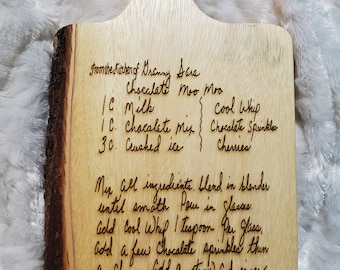 From the Kitchen of Granny Sara
Chocolate Moo Moo
1 C. Milk Cool Whip
1 C. Chocolate Mix Chocolate Sprinkles
3 C. Crushed ice Cherries
Mix all ingredients blend in blender
until smoth Pour in glasses
add Cool Whip 1 teaspoon Per Glass,
add a few Chocolate sprinkles then